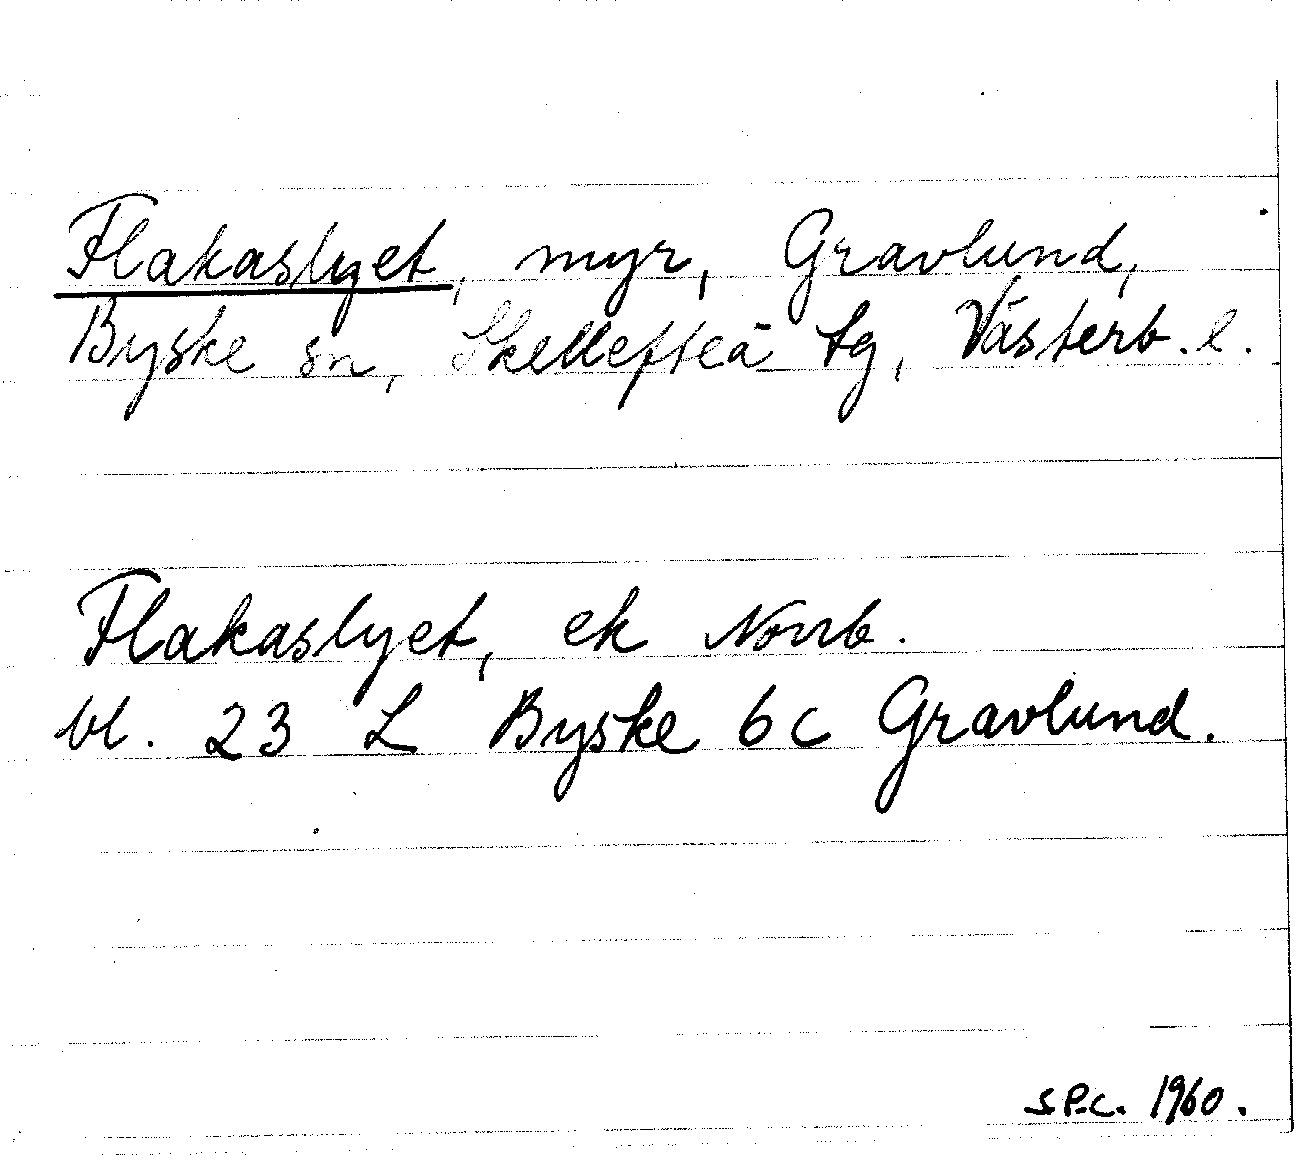 Flakaslyet, myr, Gravlund,
Byske sn, Skellefteå tg, Västerb. l.
Flakaslyet, ek Norrb.
bl. 23 L Byske 6c Gravlund.
S.P.C. 1960.